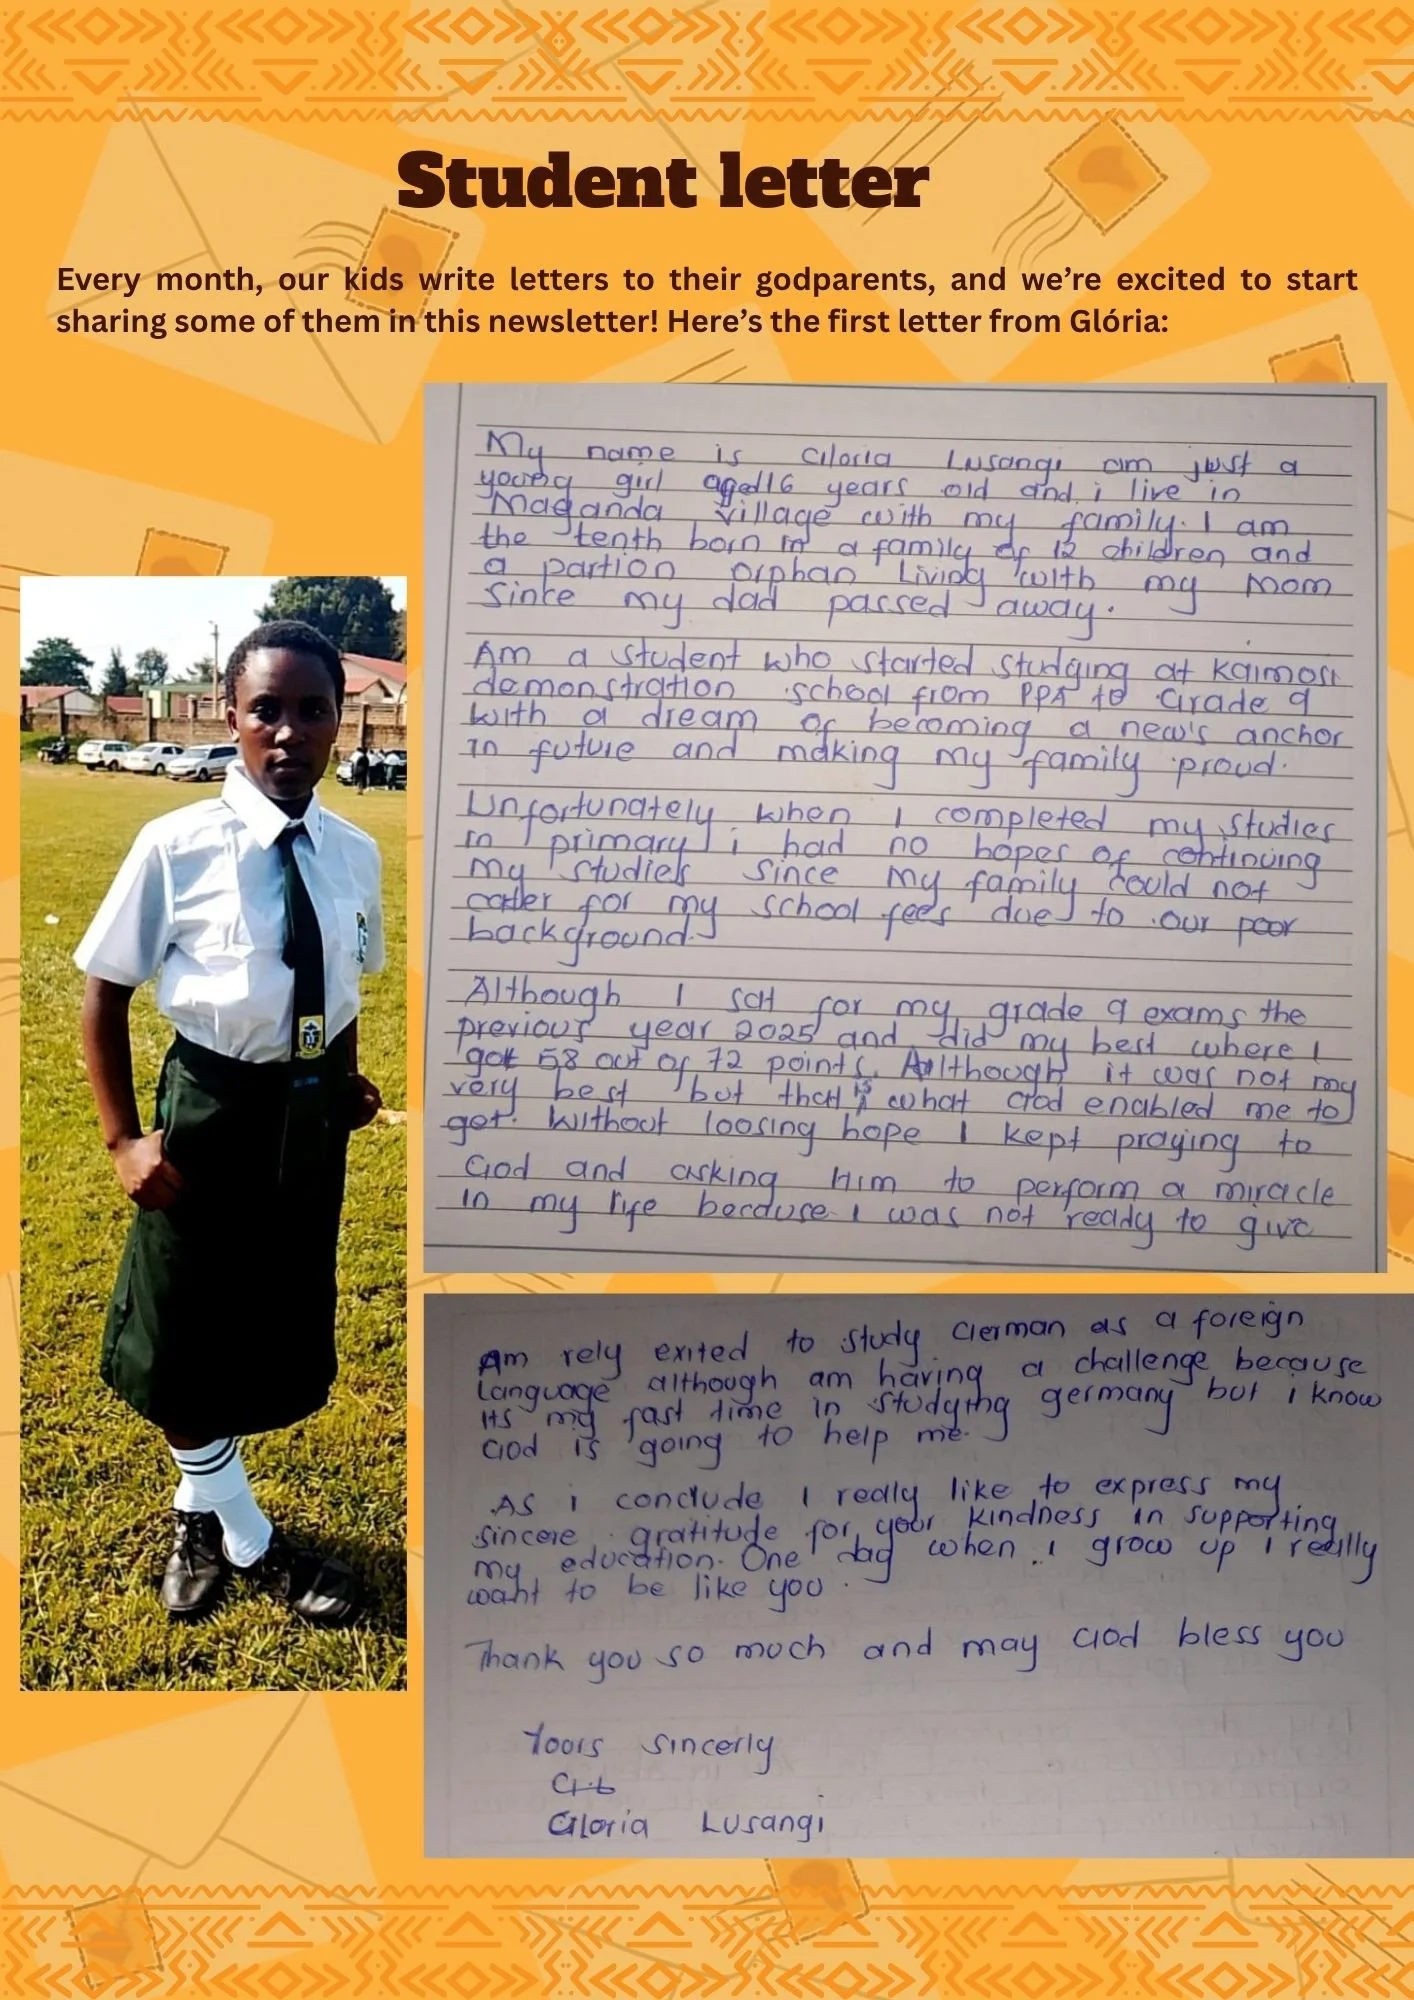 Student letter
Every month, our kids write letters to their godparents, and we're excited to start
sharing some of them in this newsletter! Here's the first letter from Glória:
My name is Gloria Lusangi am just a
young girl aged 16 years old and i live in
Maganda village with my family. I am
the tenth born in a family of 12 children and
a partion orphan living with my mom
since my dad passed away.
Am a student who started studying at Kaimosi
demonstration school from PPA to Grade 9
with a dream of becoming a new's anchor
in future and making my family proud.
Unfortunately when I completed my studies
in primary i had no hopes of continuing
my studies since my family could not
cater for my school fees due to our poor
background.
Although I sat for my grade 9 exams the
previous year 2025 and did my best where I
got 58 out of 72 points. Although it was not my
very best but that is what God enabled me to
get. Without loosing hope I kept praying to
God and asking Him to perform a miracle
in my life because I was not ready to give
Am rely exited to study German as a foreign
language although am having a challenge because
its my fast time in studying germany but i know
God is going to help me.
As i conclude I really like to express my
sincere gratitude for your kindness in supporting
my education. One day when i grow up I really
want to be like you.
Thank you so much and may God bless you
Yours sincerly
Gloria Lusangi